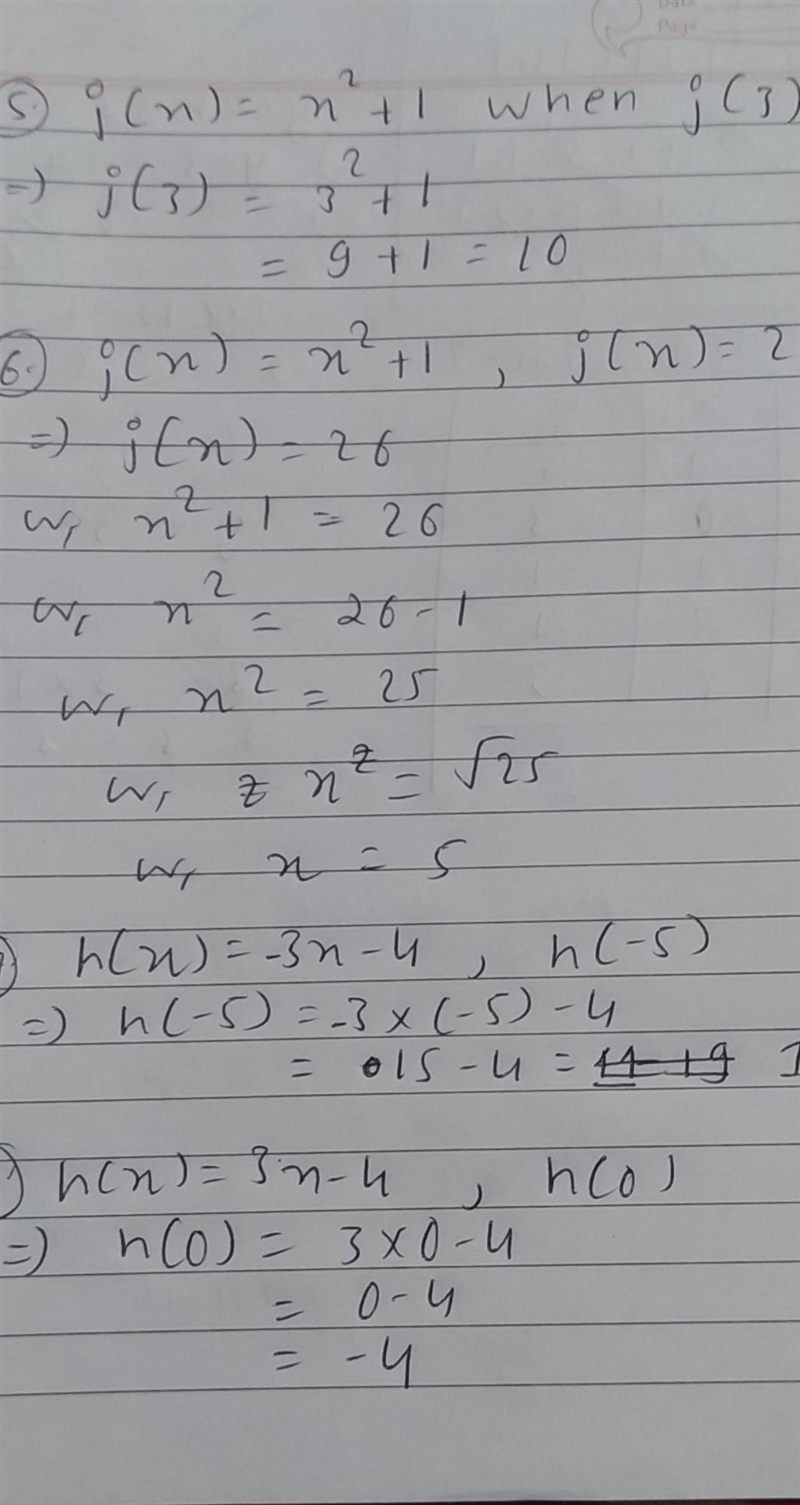 Page
5. j(x) = x² + 1 when j(3)
=> j(3) = 3² + 1
= 9 + 1 = 10
6. j(x) = x² + 1 , j(x) = 2
=> j(x) = 26
w, x² + 1 = 26
w, x² = 26 - 1
w, x² = 25
w, x = √25
w, x = 5
) h(x) = -3x - 4 , h(-5)
=> h(-5) = -3 × (-5) - 4
= 15 - 4 =
) h(x) = 3x - 4 , h(0)
=> h(0) = 3 × 0 - 4
= 0 - 4
= -4